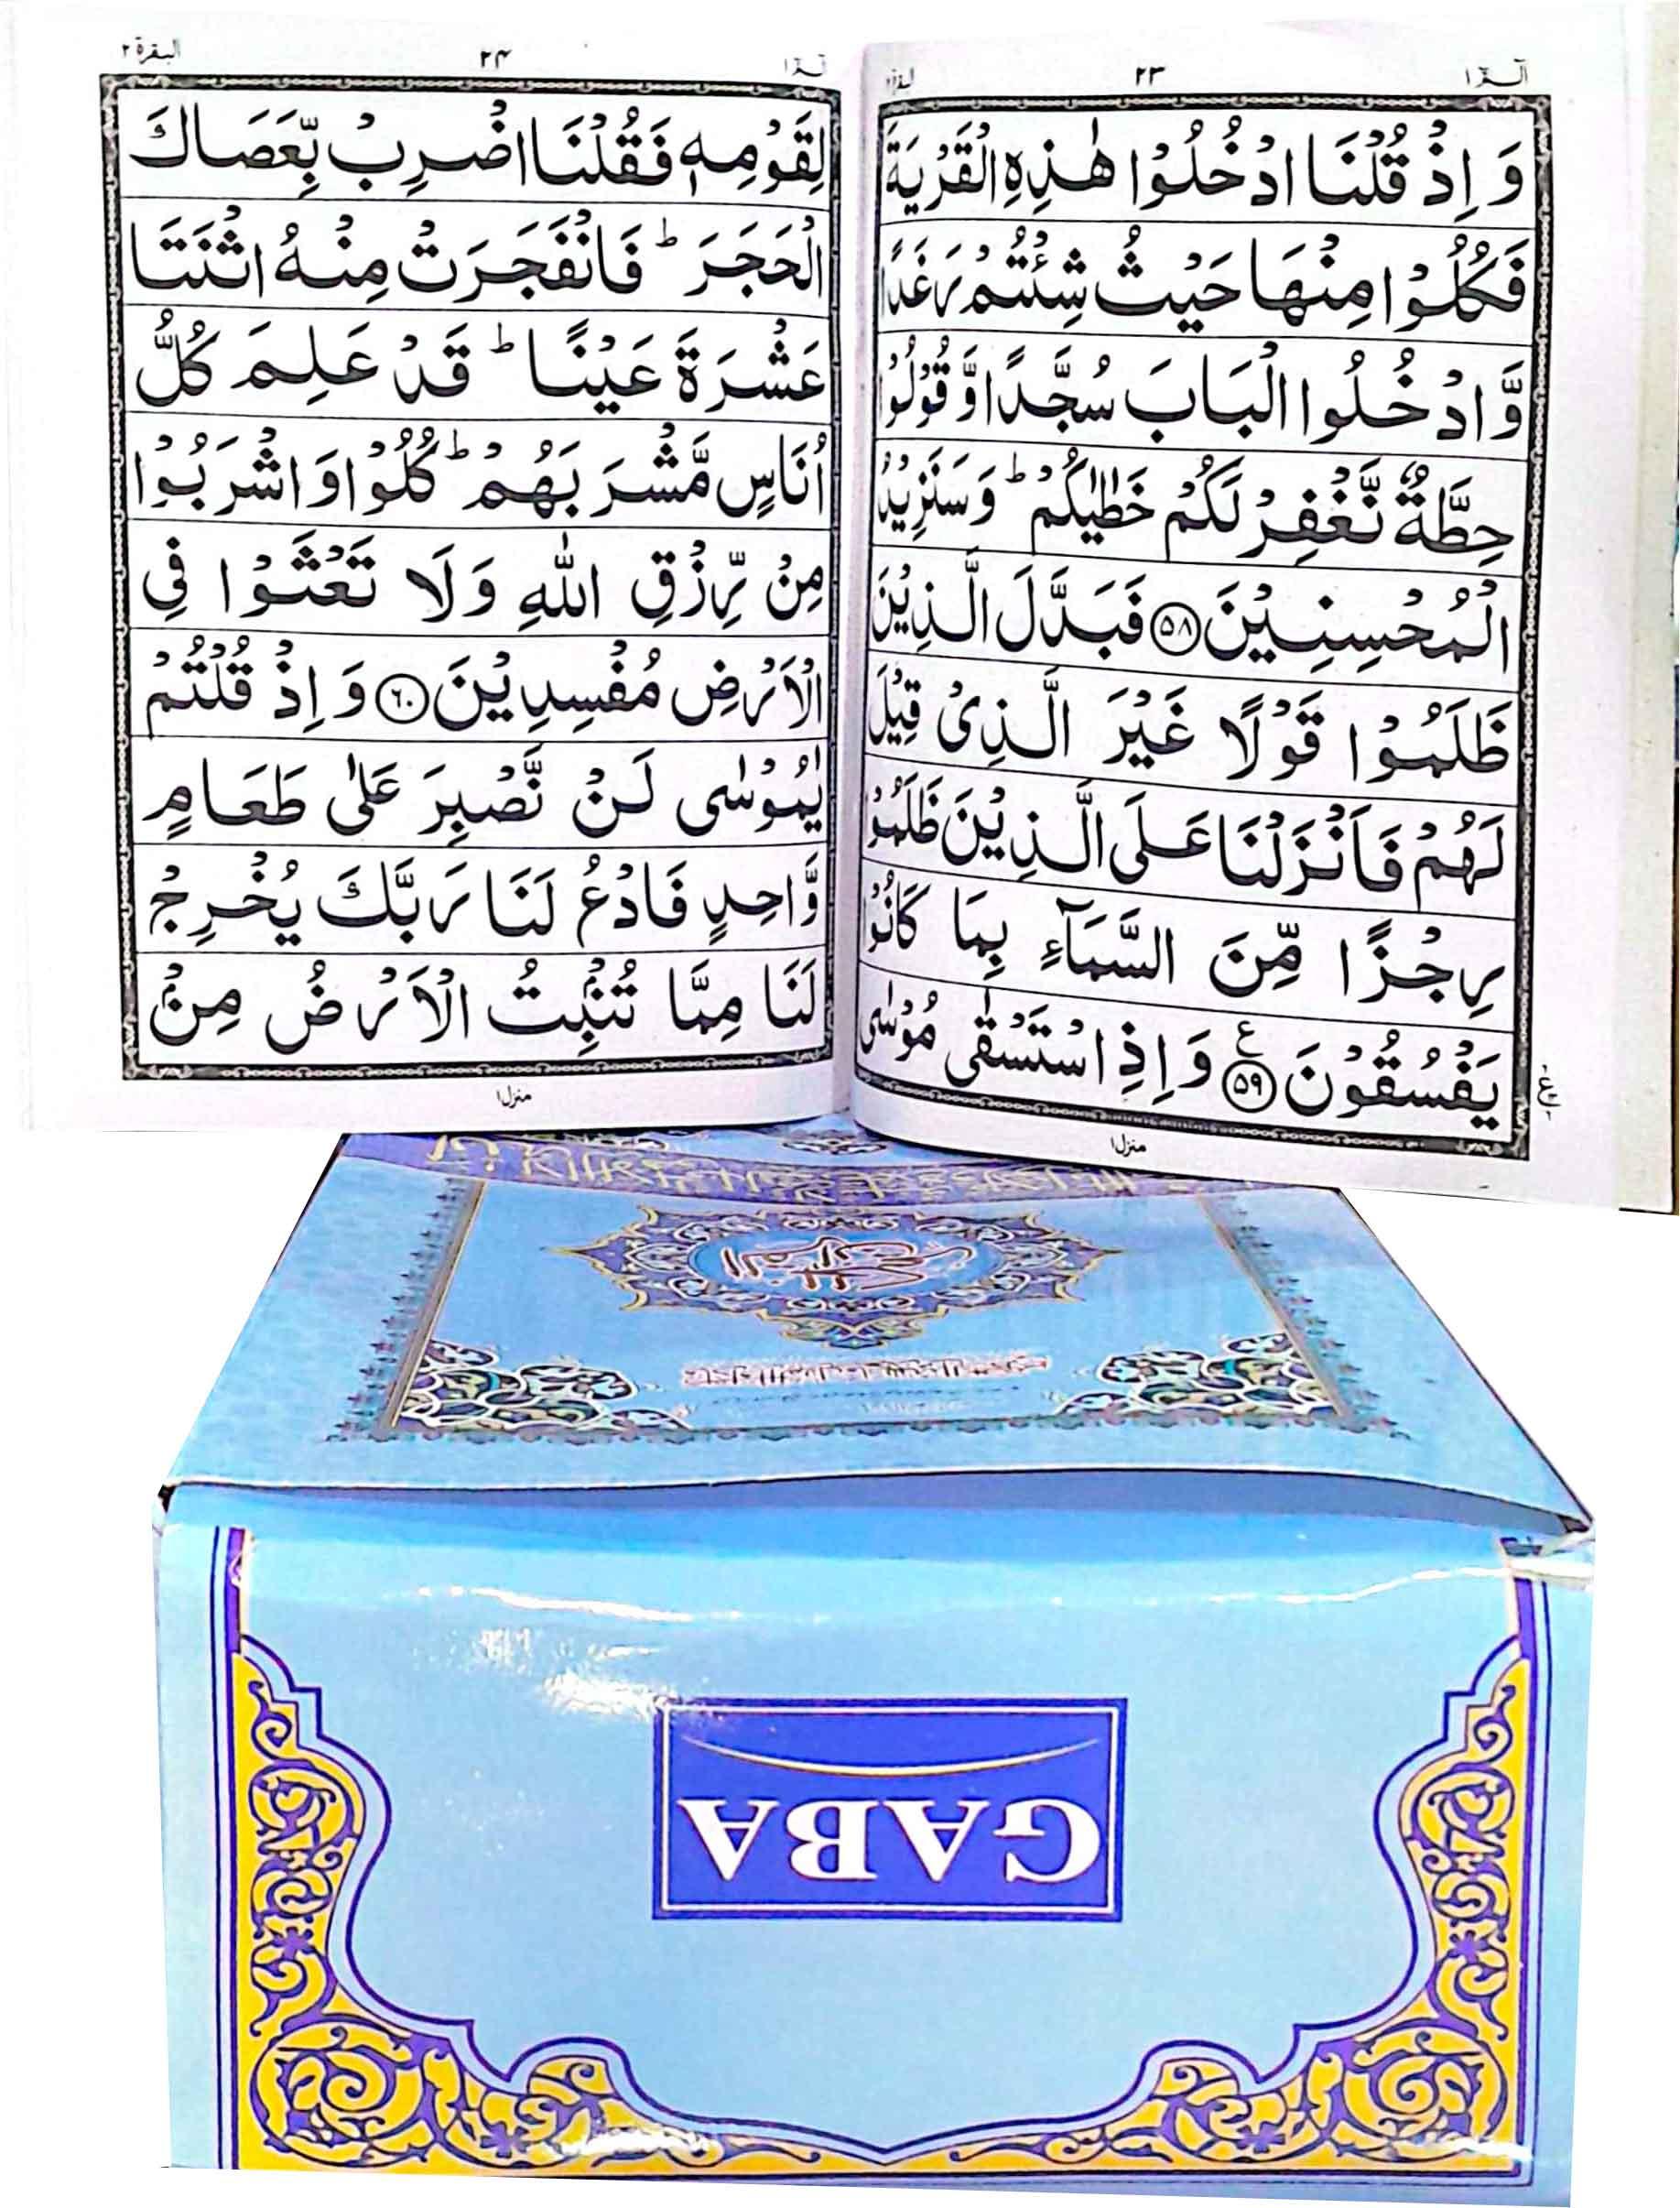 الٓمّٓ ١
٢٣
البقرة ٢
وَ اِذْ قُلْنَا ادْخُلُوْا هٰذِهِ الْقَرْيَةَ
فَكُلُوْا مِنْهَا حَيْثُ شِئْتُمْ رَغَدًا
وَّ ادْخُلُوا الْبَابَ سُجَّدًا وَّ قُوْلُوْا
حِطَّةٌ نَّغْفِرْ لَكُمْ خَطٰيٰكُمْ ؕ وَ سَنَزِيْدُ
الْمُحْسِنِيْنَ ﴿٥٨﴾ فَبَدَّلَ الَّذِيْنَ
ظَلَمُوْا قَوْلًا غَيْرَ الَّذِيْ قِيْلَ
لَهُمْ فَاَنْزَلْنَا عَلَى الَّذِيْنَ ظَلَمُوْا
رِجْزًا مِّنَ السَّمَآءِ بِمَا كَانُوْا
يَفْسُقُوْنَ ﴿٥٩﴾ ع وَ اِذِ اسْتَسْقٰى مُوْسٰى
منزل ١
الٓمّٓ ١
٢٤
البقرة ٢
لِقَوْمِهٖ فَقُلْنَا اضْرِبْ بِّعَصَاكَ
الْحَجَرَ ؕ فَانْفَجَرَتْ مِنْهُ اثْنَتَا
عَشْرَةَ عَيْنًا ؕ قَدْ عَلِمَ كُلُّ
اُنَاسٍ مَّشْرَبَهُمْ ؕ كُلُوْا وَ اشْرَبُوْا
مِنْ رِّزْقِ اللّٰهِ وَلَا تَعْثَوْا فِي
الْاَرْضِ مُفْسِدِيْنَ ﴿٦٠﴾ وَ اِذْ قُلْتُمْ
يٰمُوْسٰى لَنْ نَّصْبِرَ عَلٰى طَعَامٍ
وَّاحِدٍ فَادْعُ لَنَا رَبَّكَ يُخْرِجْ
لَنَا مِمَّا تُنْۢبِتُ الْاَرْضُ مِنْۢ
منزل ١
GABA